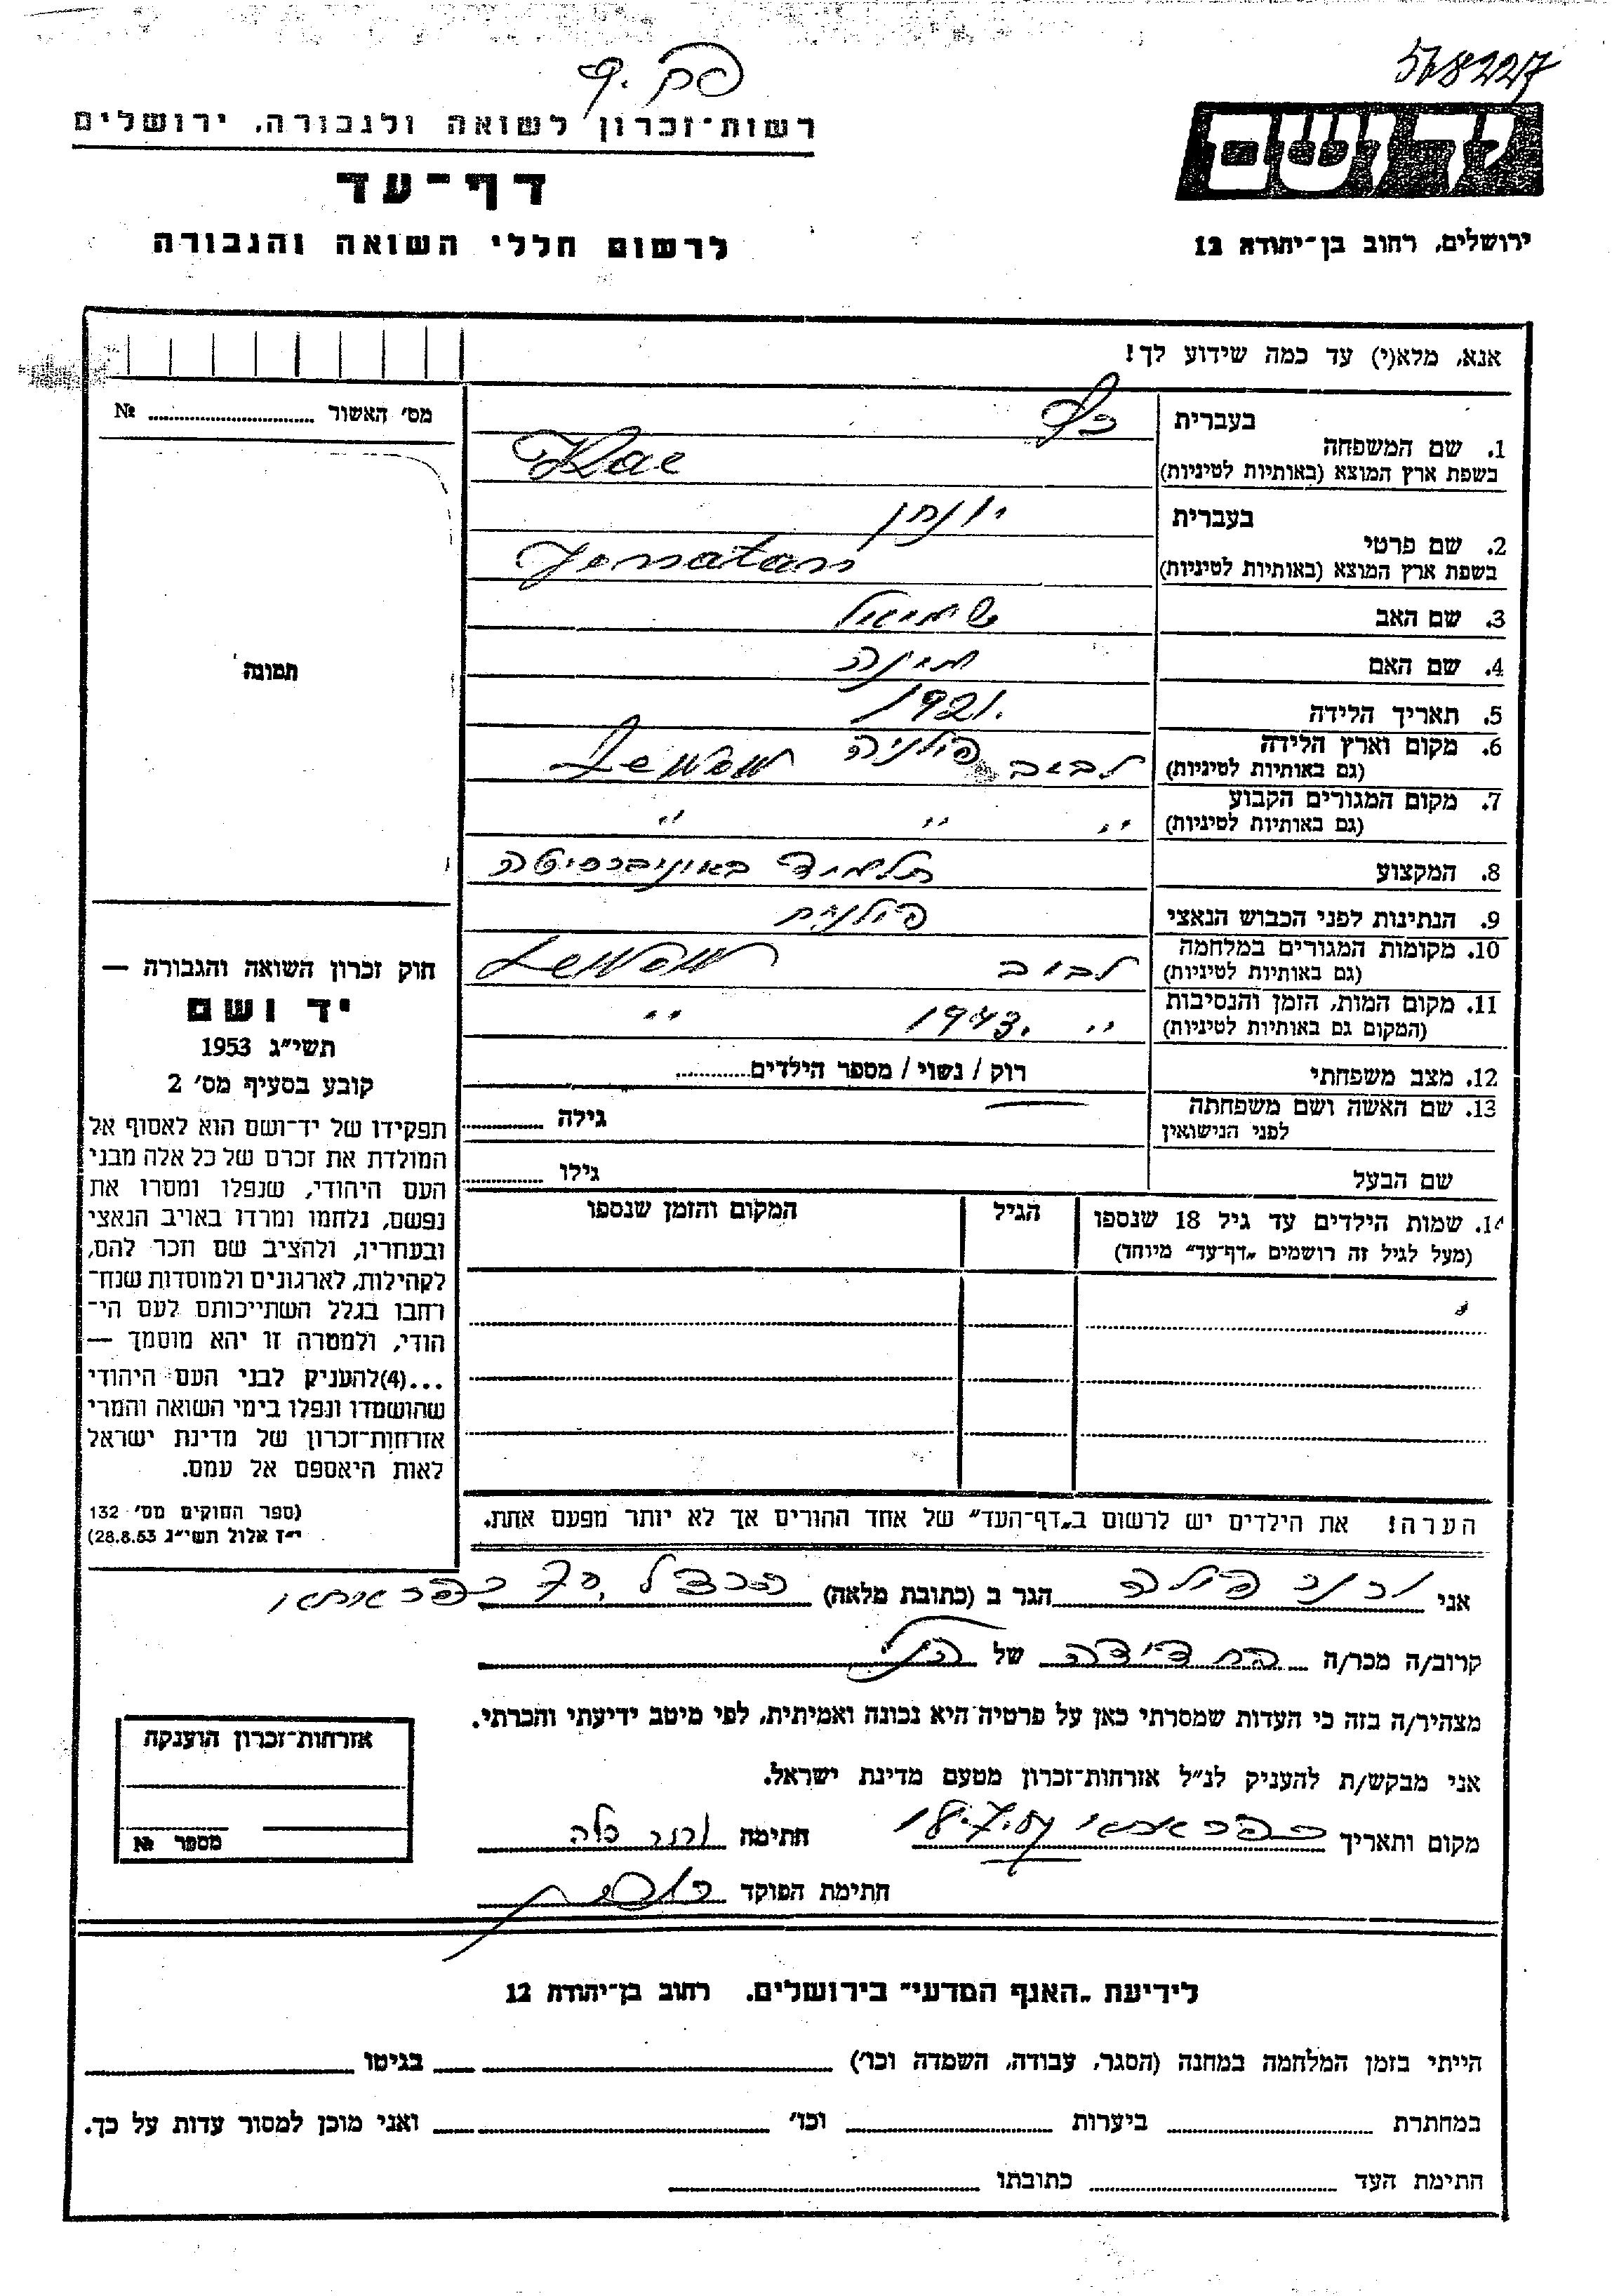 568227
רשות־זכרון לשואה ולגבורה, ירושלים
דף־עד
לרשום חללי השואה והגבורה
יד ושם
ירושלים, רחוב בן־יהודה 12
אנא, מלא(י) עד כמה שידוע לך!
מס׳ האשור №
תמונה
1. שם המשפחה בעברית כץ
בשפת ארץ המוצא (באותיות לטיניות) Kac
2. שם פרטי בעברית יונתן
בשפת ארץ המוצא (באותיות לטיניות) Jonatan
3. שם האב שמואל
4. שם האם
5. תאריך הלידה 1921.
6. מקום וארץ הלידה לבוב פולניה
(גם באותיות לטיניות)
7. מקום המגורים הקבוע
(גם באותיות לטיניות) ״ ״ ״
8. המקצוע תלמיד באוניברסיטה
9. הנתינות לפני הכבוש הנאצי פולנית
10. מקומות המגורים במלחמה לבוב
(גם באותיות לטיניות)
11. מקום המות, הזמן והנסיבות ״ 1943. ״
(המקום גם באותיות לטיניות)
12. מצב משפחתי רוק / נשוי / מספר הילדים
13. שם האשה ושם משפחתה גילה
לפני הנישואין
שם הבעל גילו
14. שמות הילדים עד גיל 18 שנספו הגיל המקום והזמן שנספו
(מעל לגיל זה רושמים „דף־עד״ מיוחד)
הערה! את הילדים יש לרשום ב„דף־העד״ של אחד ההורים אך לא יותר מפעם אחת.
חוק זכרון השואה והגבורה —
יד ושם
תשי״ג 1953
קובע בסעיף מס׳ 2
תפקידו של יד־ושם הוא לאסוף אל
המולדת את זכרם של כל אלה מבני
העם היהודי, שנפלו ומסרו את
נפשם, נלחמו ומרדו באויב הנאצי
ובעוזריו, ולהציב שם וזכר להם,
לקהילות, לארגונים ולמוסדות שנח־
רחבו בגלל השתייכותם לעם הי־
הודי, ולמטרה זו יהא מוסמך —
...(4)להעניק לבני העם היהודי
שהושמדו ונפלו בימי השואה והמרי
אזרחות־זכרון של מדינת ישראל
לאות היאספם אל עמם.
(ספר החוקים מס׳ 132
י״ז אלול תשי״ג 28.8.53)
אני הגר ב (כתובת מלאה) הרצל
קרוב/ה מכר/ה של
מצהיר/ה בזה כי העדות שמסרתי כאן על פרטיה היא נכונה ואמיתית, לפי מיטב ידיעתי והכרתי.
אני מבקש/ת להעניק לנ״ל אזרחות־זכרון מטעם מדינת ישראל.
מקום ותאריך חתימה
חתימת הפוקד
אזרחות־זכרון הוענקה
מספר №
לידיעת „האגף המדעי״ בירושלים. רחוב בן־יהודה 12
הייתי בזמן המלחמה במחנה (הסגר, עבודה, השמדה וכו׳) בגיטו
במחתרת ביערות וכו׳ ואני מוכן למסור עדות על כך.
חתימת העד כתובתו